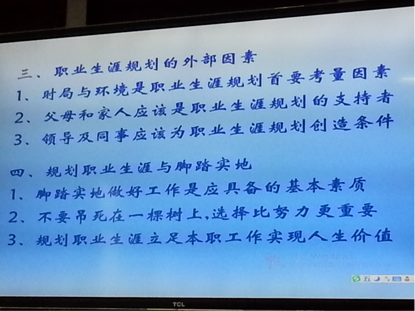 三、职业生涯规划的外部因素
1、时局与环境是职业生涯规划首要考量因素
2、父母和家人应该是职业生涯规划的支持者
3、领导及同事应该为职业生涯规划创造条件
四、规划职业生涯与脚踏实地
1、脚踏实地做好工作是应具备的基本素质
2、不要吊死在一棵树上,选择比努力更重要
3、规划职业生涯立足本职工作实现人生价值
五
TCL